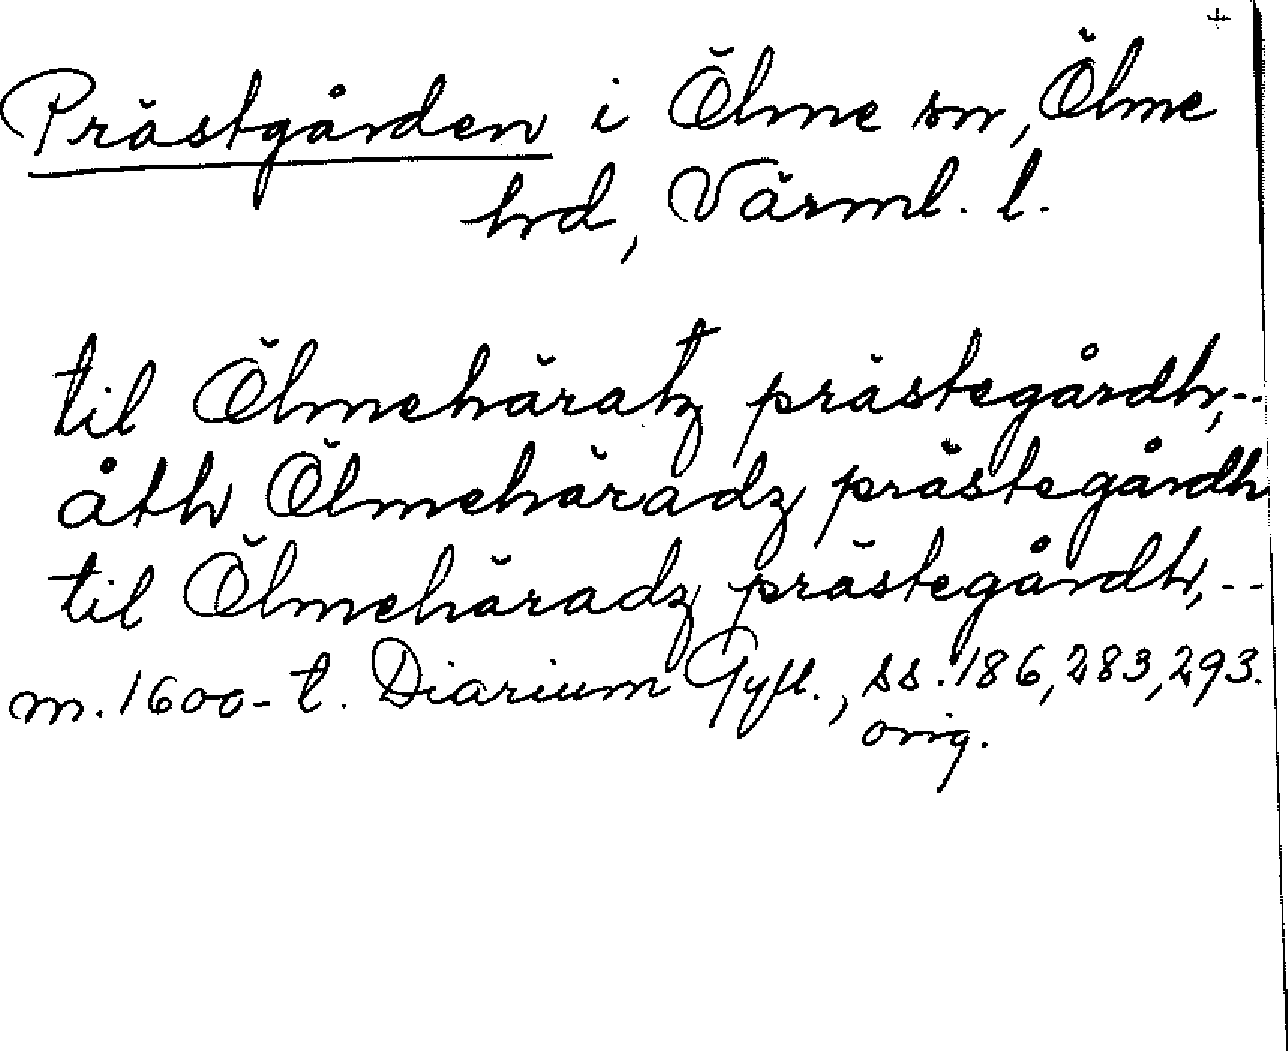 Prästgården i Ölme sn, Ölme
hd, Värml. l.
til Ölmehäratz prästegårdh, --
åth Ölmehäradz prästegårdh
til Ölmehäradz prästegårdh, --
m. 1600-t. Diarium Gyll., ss. 186, 283, 293.
orig.